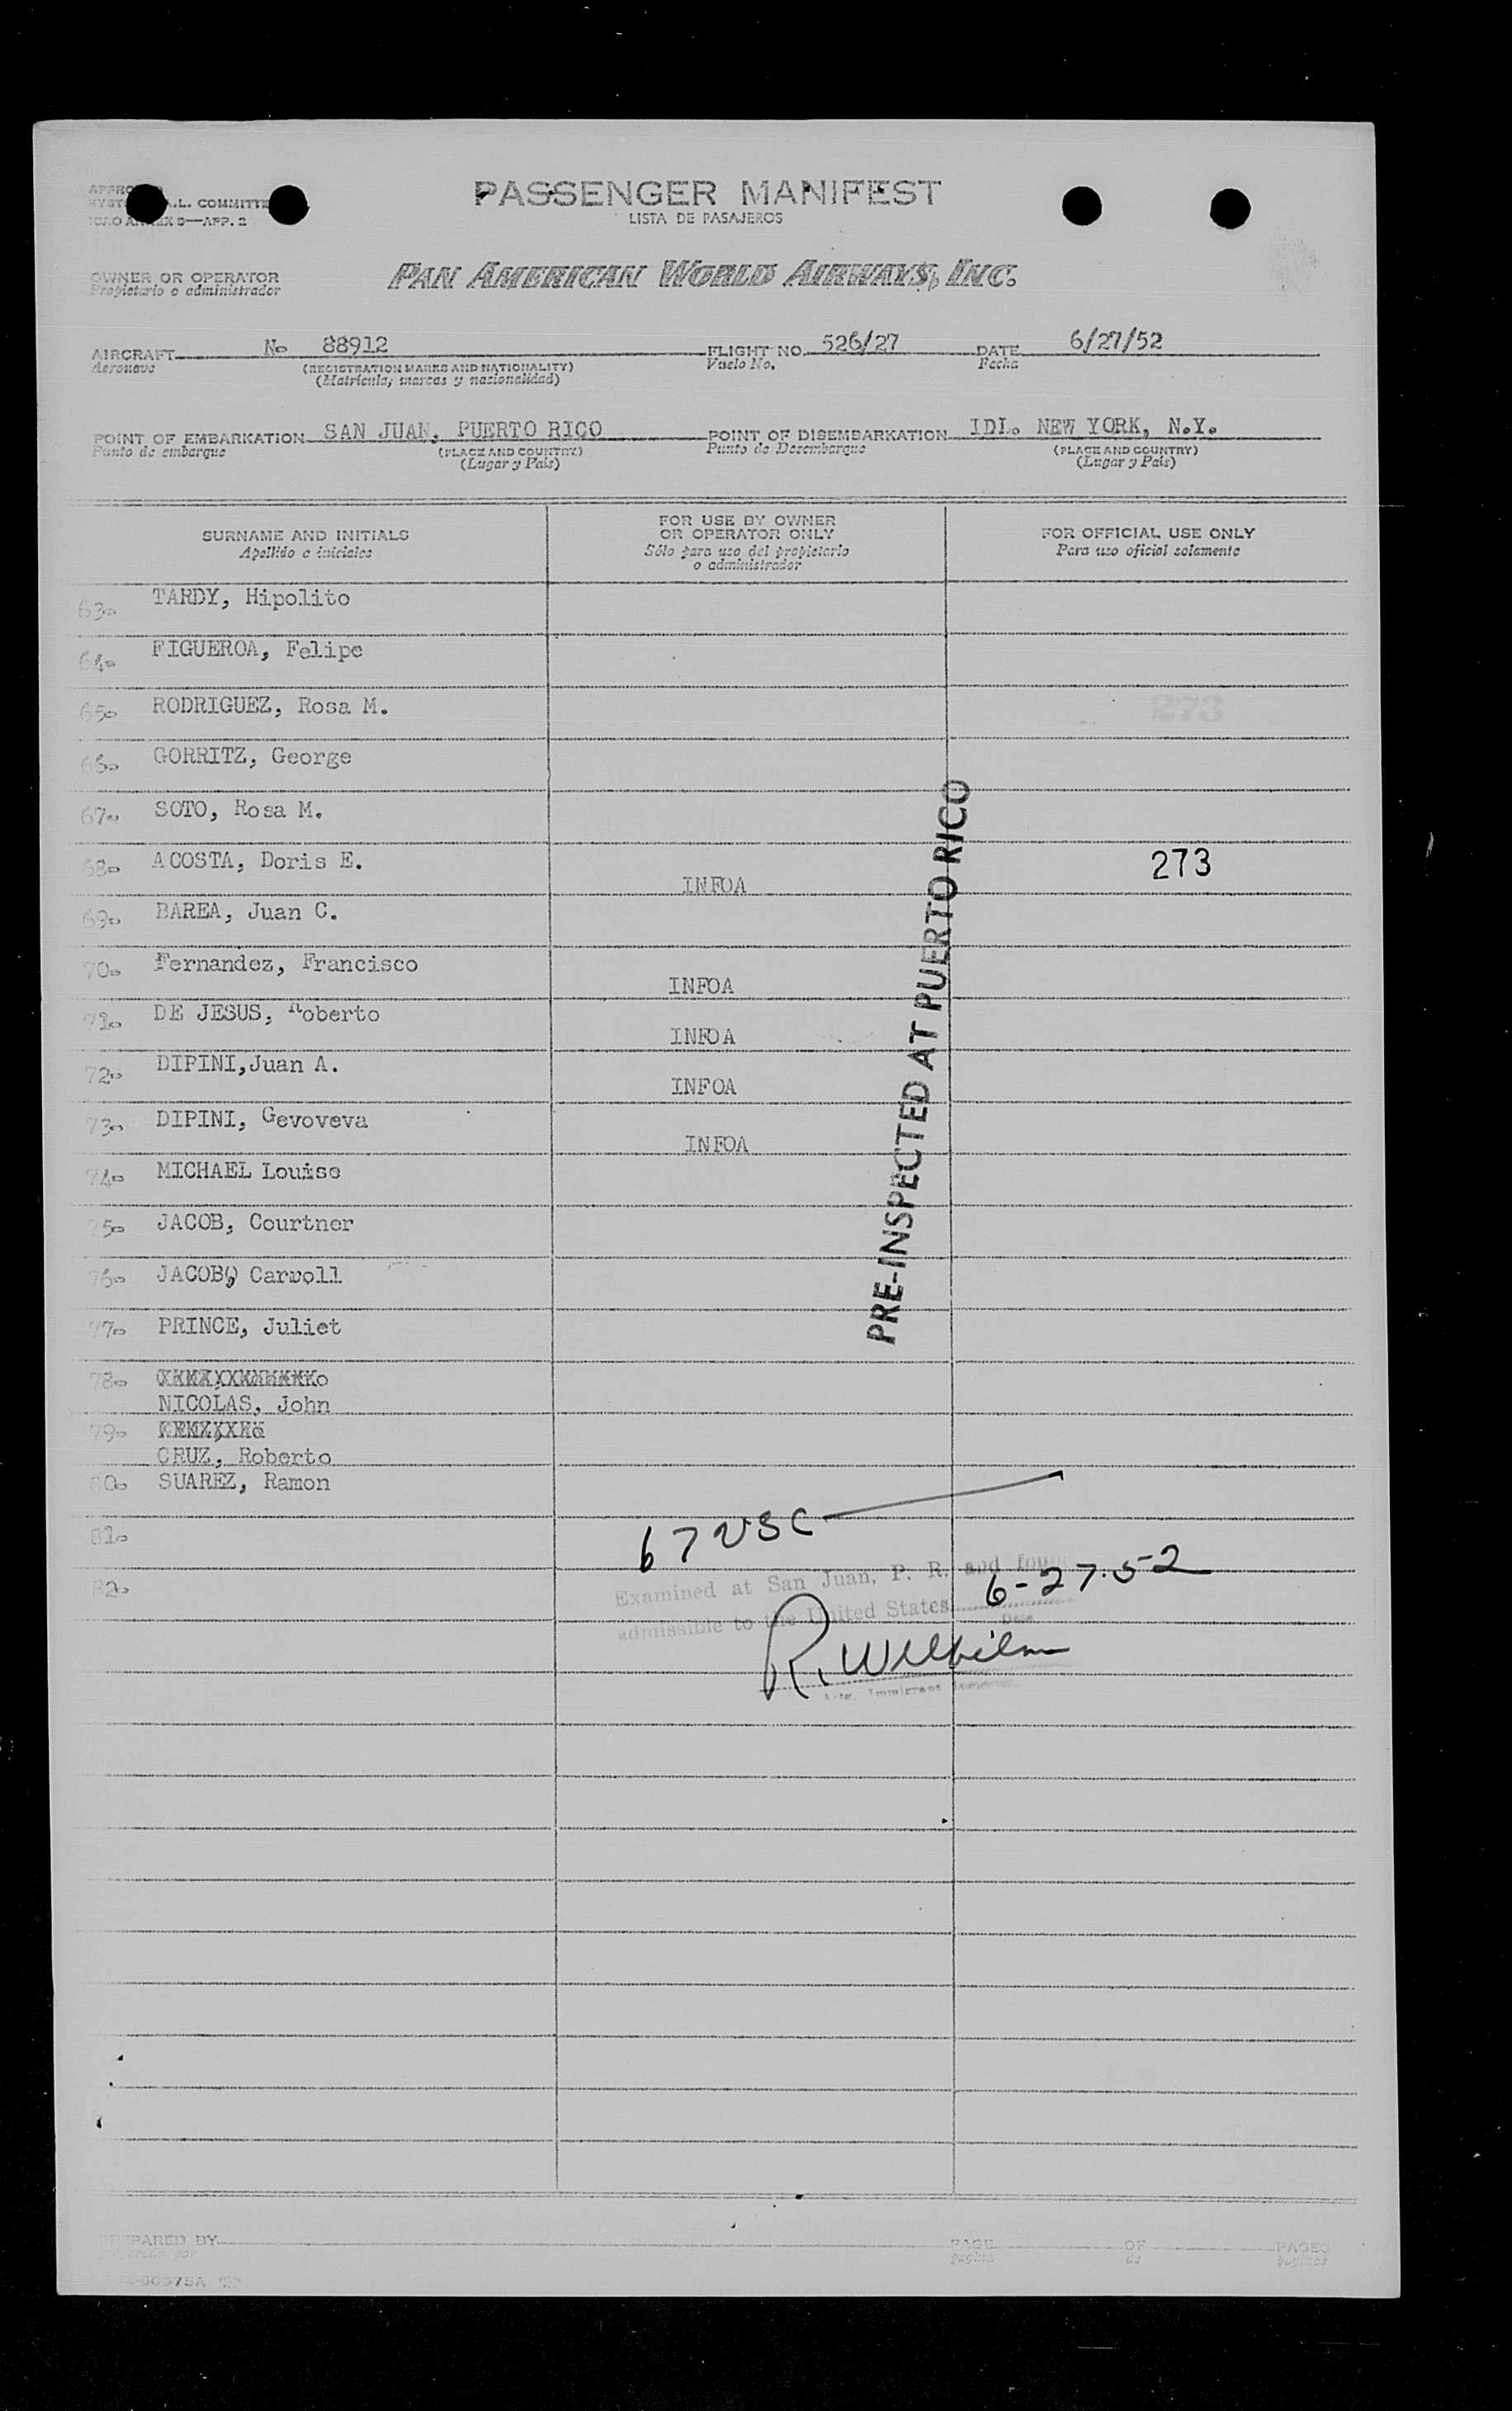 PASSENGER MANIFEST
LISTA DE PASAJEROS
.L. COMMITTE
9—APP. 2
OWNER OR OPERATOR
Propietario o administrador
PAN AMERICAN WORLD AIRWAYS, INC.
AIRCRAFT No 88912 FLIGHT NO. 526/27 DATE 6/27/52
Aeronave (REGISTRATION MARKS AND NATIONALITY) Vuelo No. Fecha
(Matricula, marcas y nacionalidad)
POINT OF EMBARKATION SAN JUAN, PUERTO RICO POINT OF DISEMBARKATION IDL. NEW YORK, N.Y.
Punto de embarque (PLACE AND COUNTRY) Punto de Desembarque (PLACE AND COUNTRY)
(Lugar y Pais) (Lugar y Pais)
SURNAME AND INITIALS
Apellido e iniciales
FOR USE BY OWNER
OR OPERATOR ONLY
Sólo para uso del propietario
o administrador
FOR OFFICIAL USE ONLY
Para uso oficial solamente
63. TARDY, Hipolito
64. FIGUEROA, Felipe
65. RODRIGUEZ, Rosa M. 273
66. GORRITZ, George
67. SOTO, Rosa M.
68. ACOSTA, Doris E. INFOA 273
69. BAREA, Juan C.
70. Fernandez, Francisco INFOA
71. DE JESUS, Roberto INFOA
72. DIPINI,Juan A. INFOA
73. DIPINI, Gevoveva INFOA
74. MICHAEL Louise
75. JACOB, Courtner
76. JACOB, Carvoll
77. PRINCE, Juliet
78.
NICOLAS, John
79.
CRUZ, Roberto
80. SUAREZ, Ramon
81.
82.
PRE-INSPECTED AT PUERTO RICO
67 USC
Examined at San Juan, P. R. and found
admissible to the United States 6-27-52
Date
R. Wilhilm
Immigrant Inspector
PREPARED BY PAGE OF PAGES
pagina de paginas